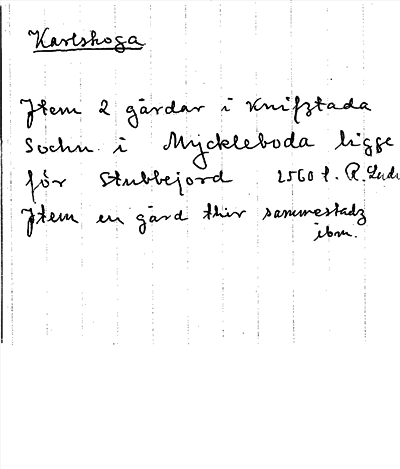 Karlskoga
Jtem 2 gårdar i Knifztada
Sochn i Myckleboda ligge
för Stubbejord 2560 f. R.
Jtem en gård thir sammestadz
ibm.